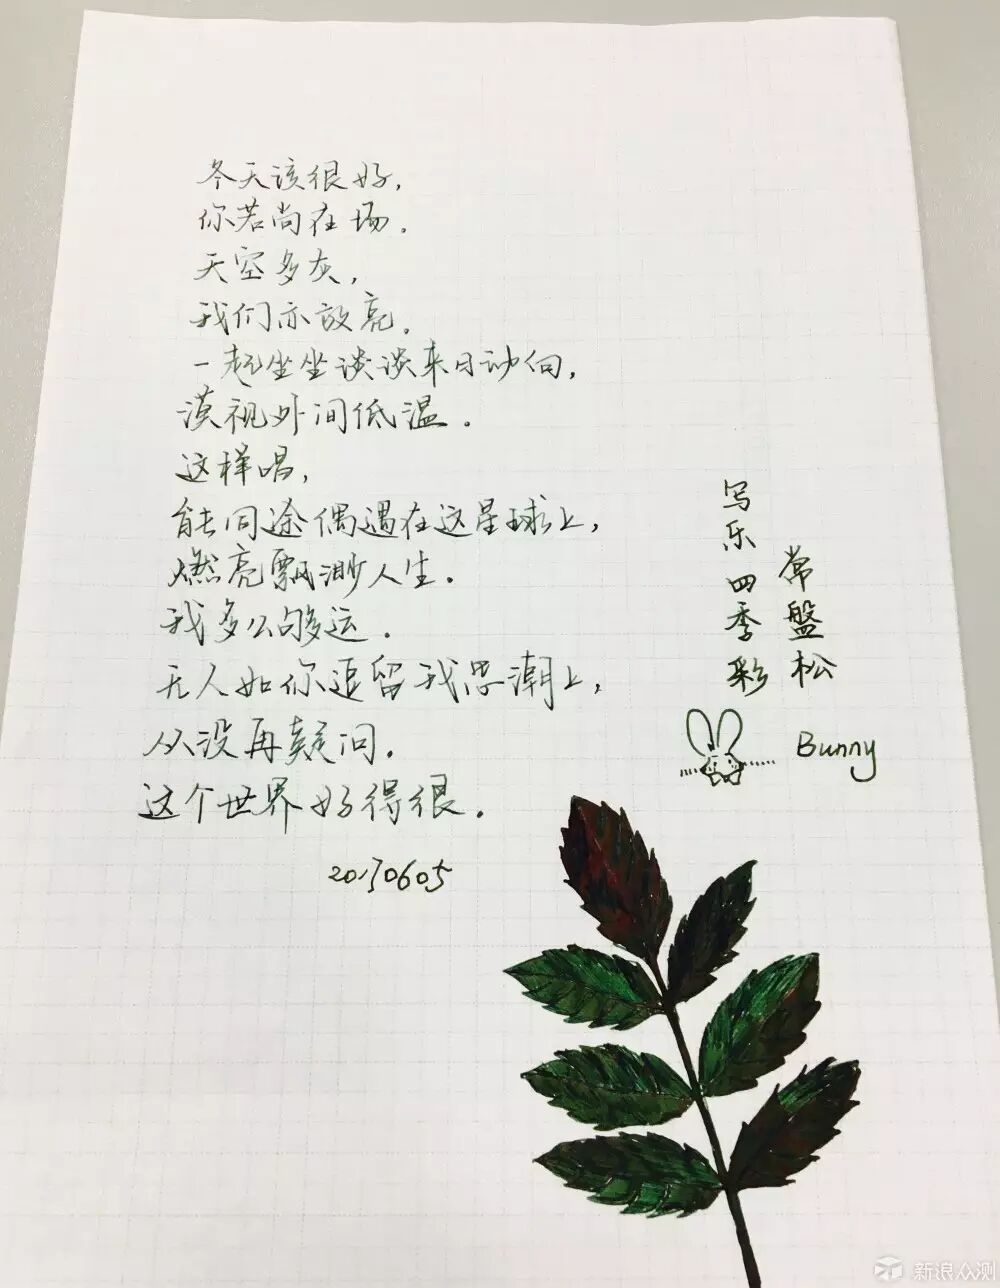 冬天该很好，
你若尚在场．
天空多灰，
我们亦放亮．
一起坐坐谈谈来日动向，
漠视外间低温．
这样唱，
能同途偶遇在这星球上，
燃亮飘渺人生．
我多么够运．
无人如你逗留我思潮上，
从没再疑问．
这个世界好得很．
20170605
写乐四季彩
常盤松
Bunny
新浪众测